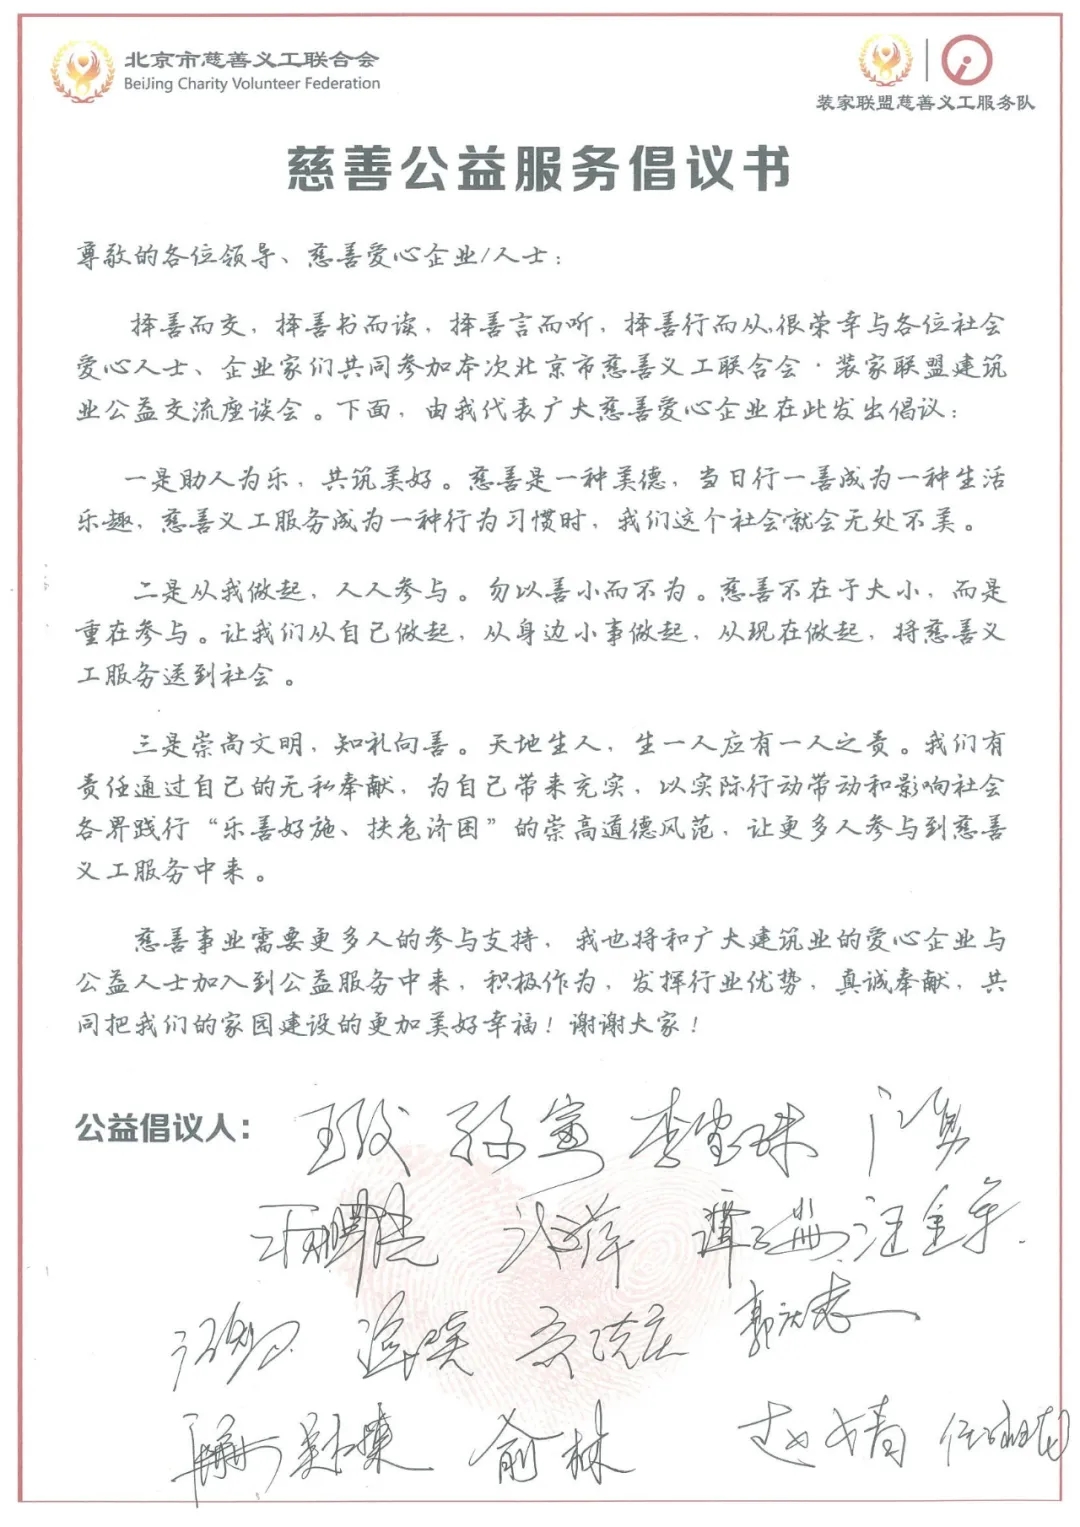 北京市慈善义工联合会
BeiJing Charity Volunteer Federation
装家联盟慈善义工服务队
慈善公益服务倡议书
尊敬的各位领导、慈善爱心企业/人士：
择善而交，择善书而读，择善言而听，择善行而从,很荣幸与各位社会
爱心人士、企业家们共同参加本次北京市慈善义工联合会·装家联盟建筑
业公益交流座谈会。下面，由我代表广大慈善爱心企业在此发出倡议：
一是助人为乐，共筑美好。慈善是一种美德，当日行一善成为一种生活
乐趣，慈善义工服务成为一种行为习惯时，我们这个社会就会无处不美。
二是从我做起，人人参与。勿以善小而不为。慈善不在于大小，而是
重在参与。让我们从自己做起，从身边小事做起，从现在做起，将慈善义
工服务送到社会。
三是崇尚文明，知礼向善。天地生人，生一人应有一人之责。我们有
责任通过自己的无私奉献，为自己带来充实，以实际行动带动和影响社会
各界践行“乐善好施、扶危济困”的崇高道德风范，让更多人参与到慈善
义工服务中来。
慈善事业需要更多人的参与支持，我也将和广大建筑业的爱心企业与
公益人士加入到公益服务中来，积极作为，发挥行业优势，真诚奉献，共
同把我们的家园建设的更加美好幸福！谢谢大家！
公益倡议人：
俞林